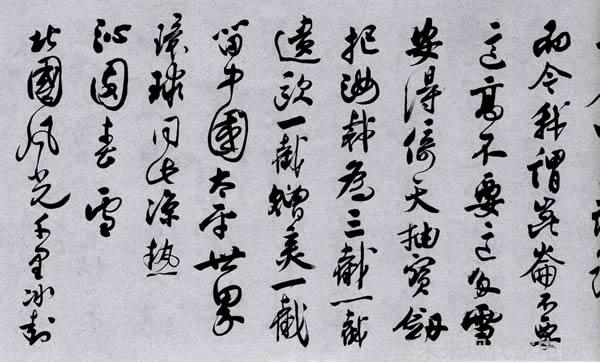 而今我謂崑崙不要
這高不要這多雪
安得倚天抽寶劍
把汝裁為三截一截
遺歐一截贈美一截
留中國太平世界
環球同此涼熱
沁園春雪
北國風光千里冰封